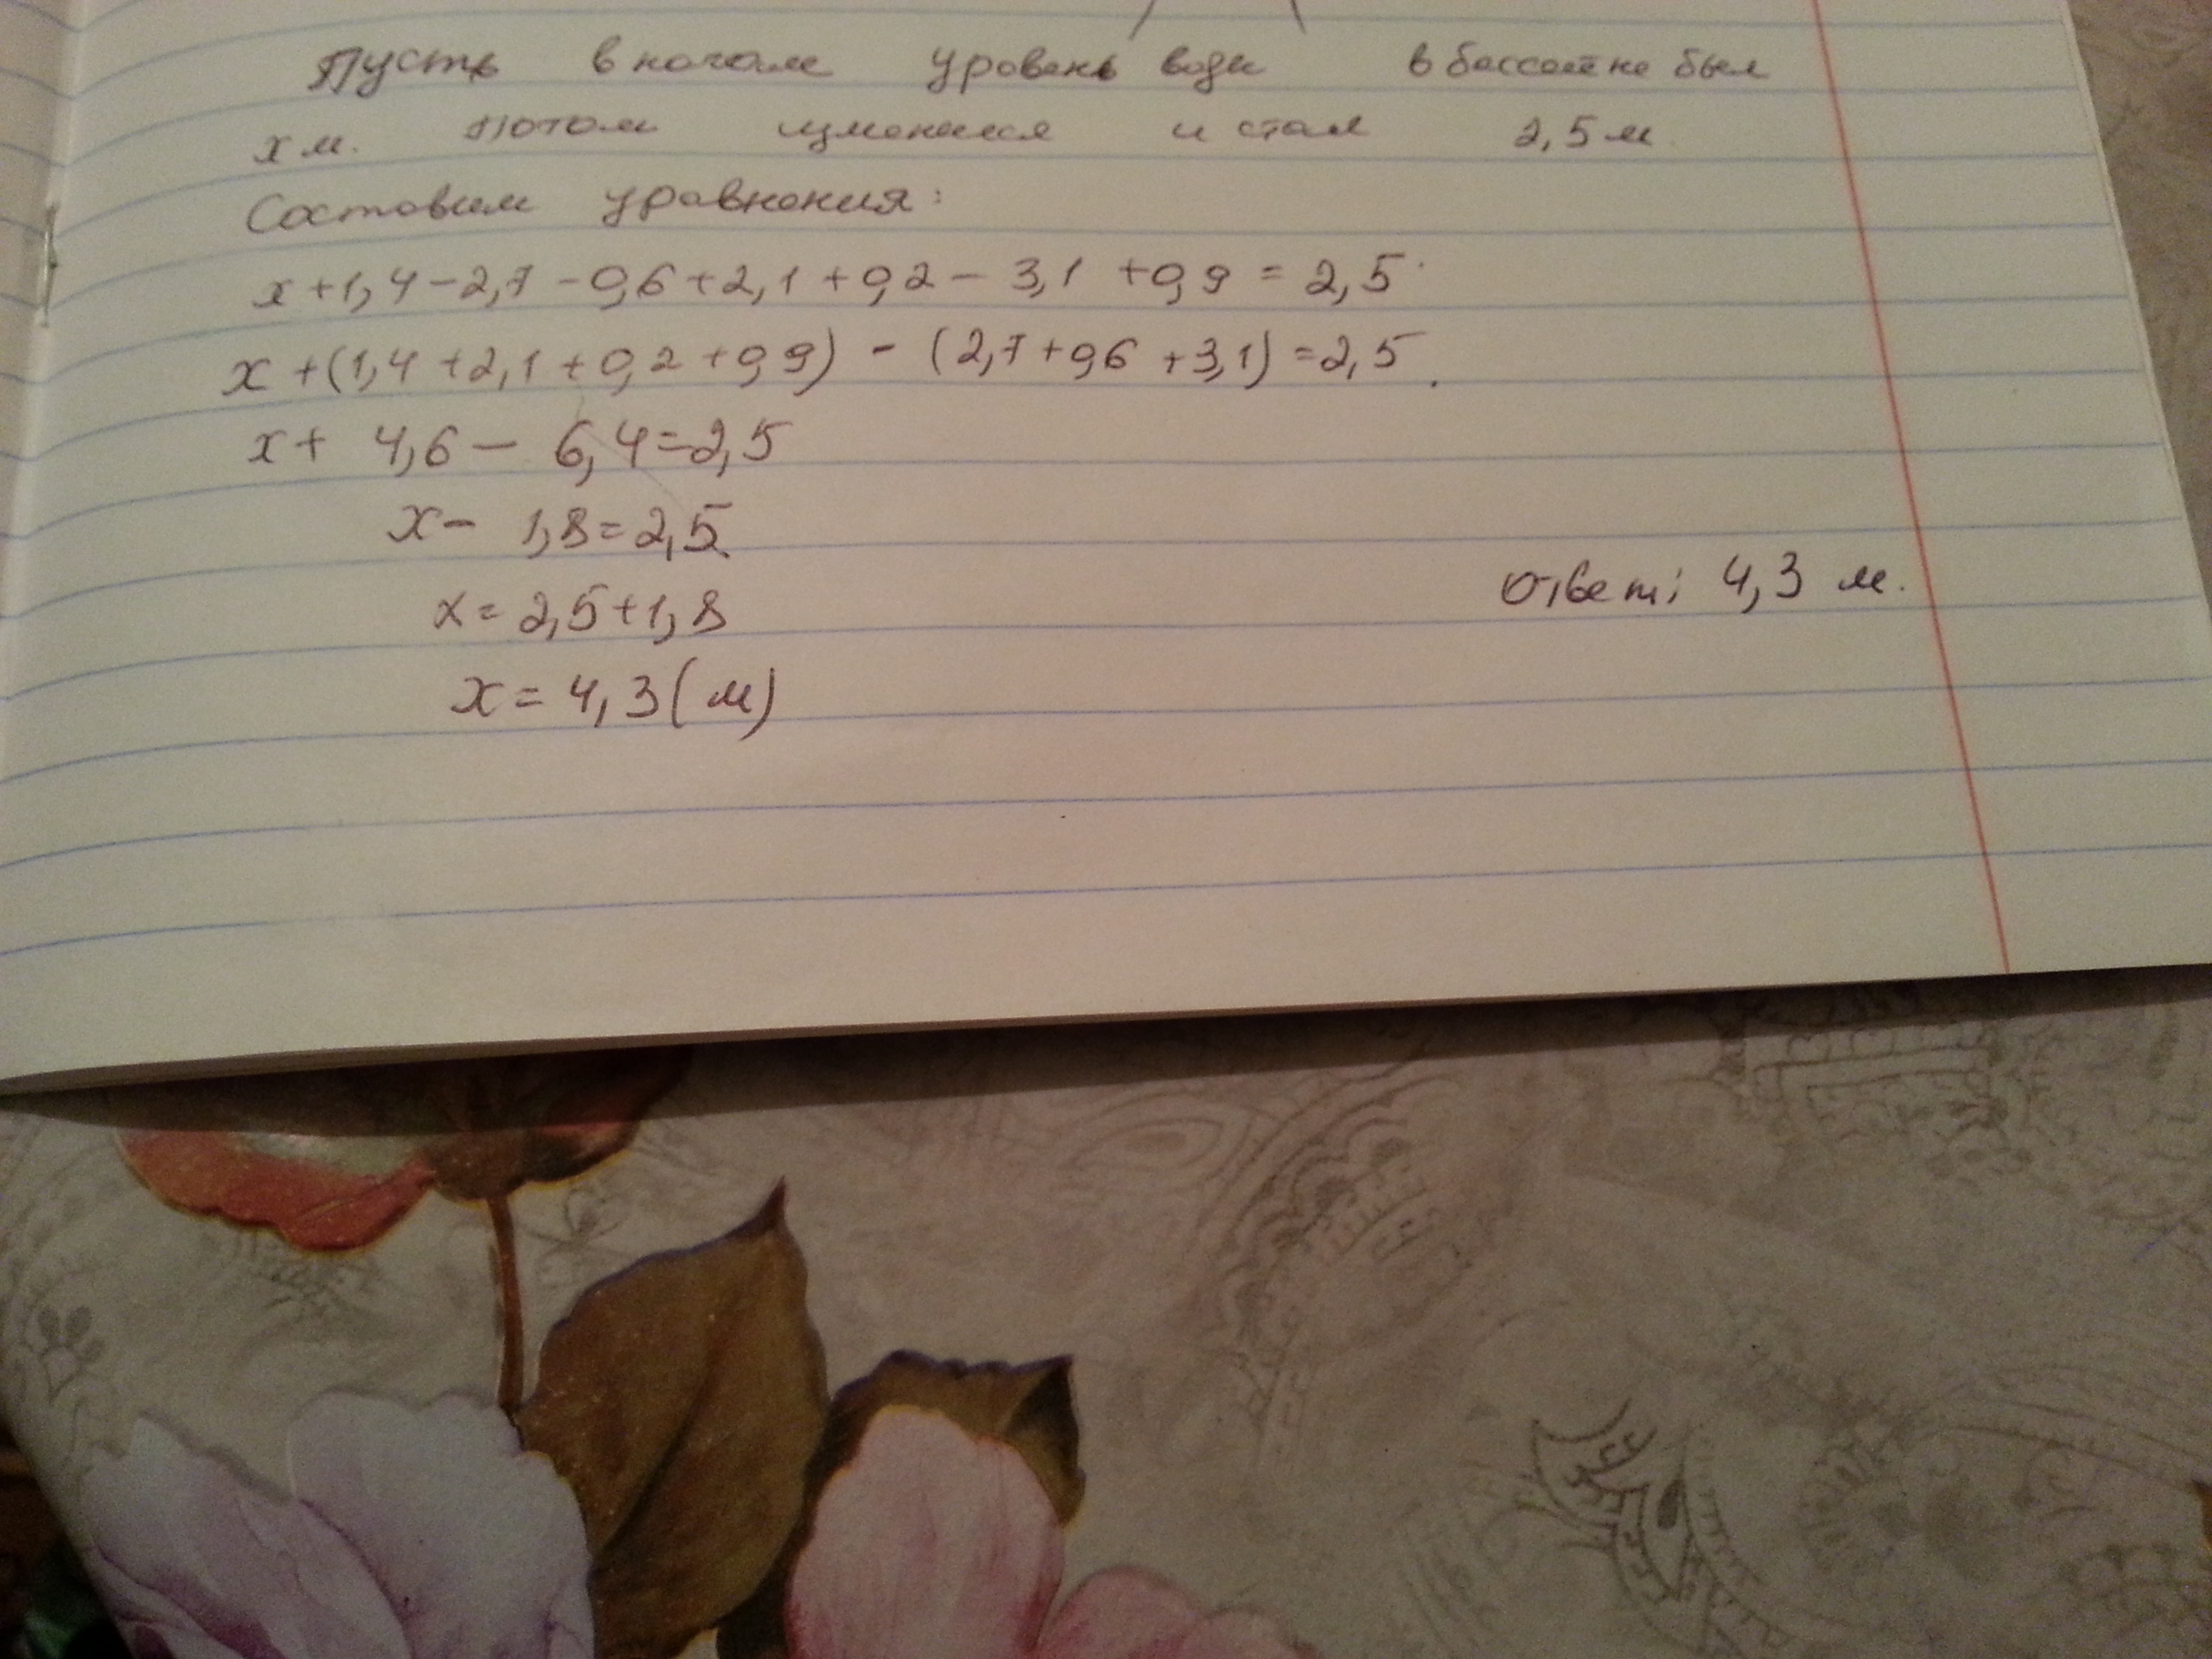 Пусть в начале уровень воды в бассейне был
х м. Потом изменился и стал 2,5 м.
Составим уравнения:
х + 1,4 - 2,7 - 0,6 + 2,1 + 0,2 - 3,1 + 0,9 = 2,5
х + (1,4 + 2,1 + 0,2 + 0,9) - (2,7 + 0,6 + 3,1) = 2,5.
х + 4,6 - 6,4 = 2,5
х - 1,8 = 2,5
х = 2,5 + 1,8
Ответ: 4,3 м.
х = 4,3 (м)